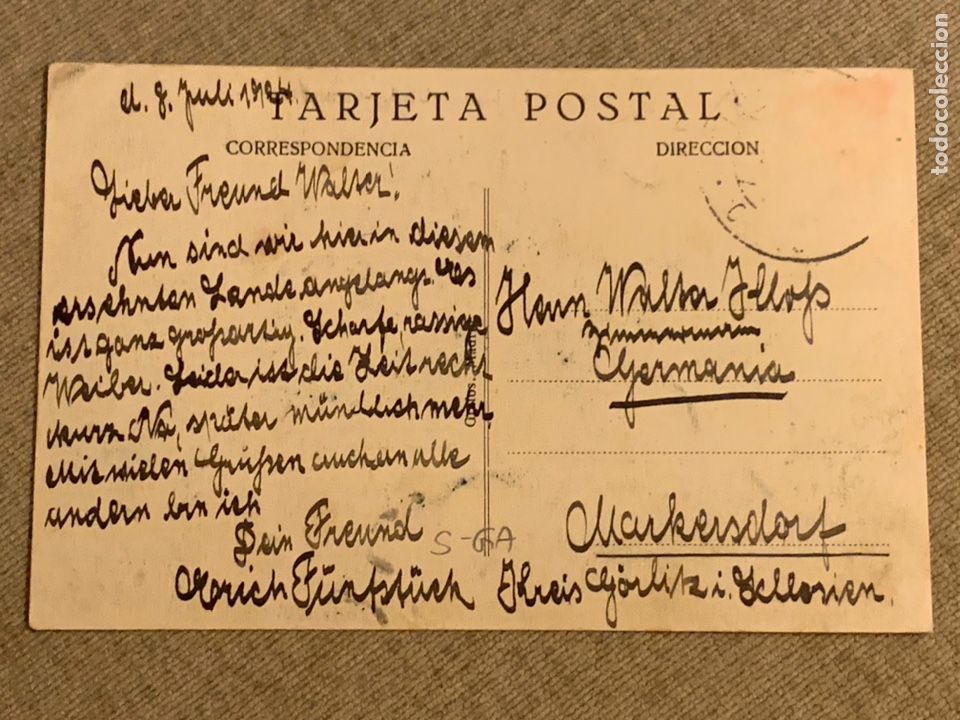 d. 8. Juli 1924.
TARJETA POSTAL
CORRESPONDENCIA
DIRECCION
Lieber Freund Walter!
Nun sind wir hier in diesem
ersehnten Lande angelangt. Es
ist ganz großartig. Scharfe, rassige
Weiber. Leider ist die Zeit recht
kurz Na, später mündlich mehr.
Mit vielen Grüßen auch an alle
andern bin ich
Dein Freund
Erich Fünfstück
Herrn Walter
Germania
Markersdorf
Kreis Görlitz i. Schlesien.
S-GA
todocoleccion